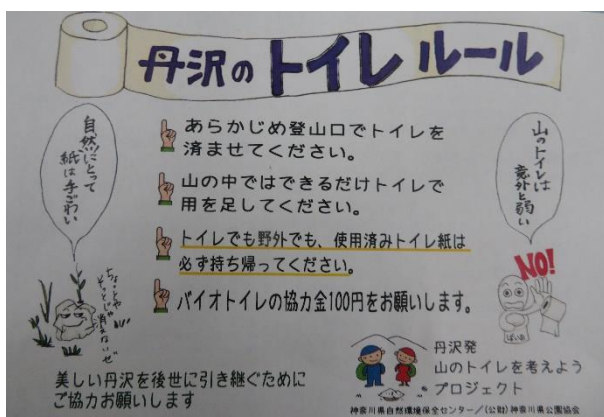 丹沢の トイレ ルール
自然にとって
紙は手ごわい
あらかじめ登山口でトイレを
済ませてください。
山の中ではできるだけトイレで
用を足してください。
トイレでも野外でも、使用済みトイレ紙は
必ず持ち帰ってください。
バイオトイレの協力金100円をお願いします。
山のトイレは
意外と弱い
NO!
ちょっとや
そっとじゃ
消えないぜ
美しい丹沢を後世に引き継ぐために
ご協力お願いします
丹沢発
山のトイレを考えよう
プロジェクト
神奈川県自然環境保全センター/(公財)神奈川県公園協会